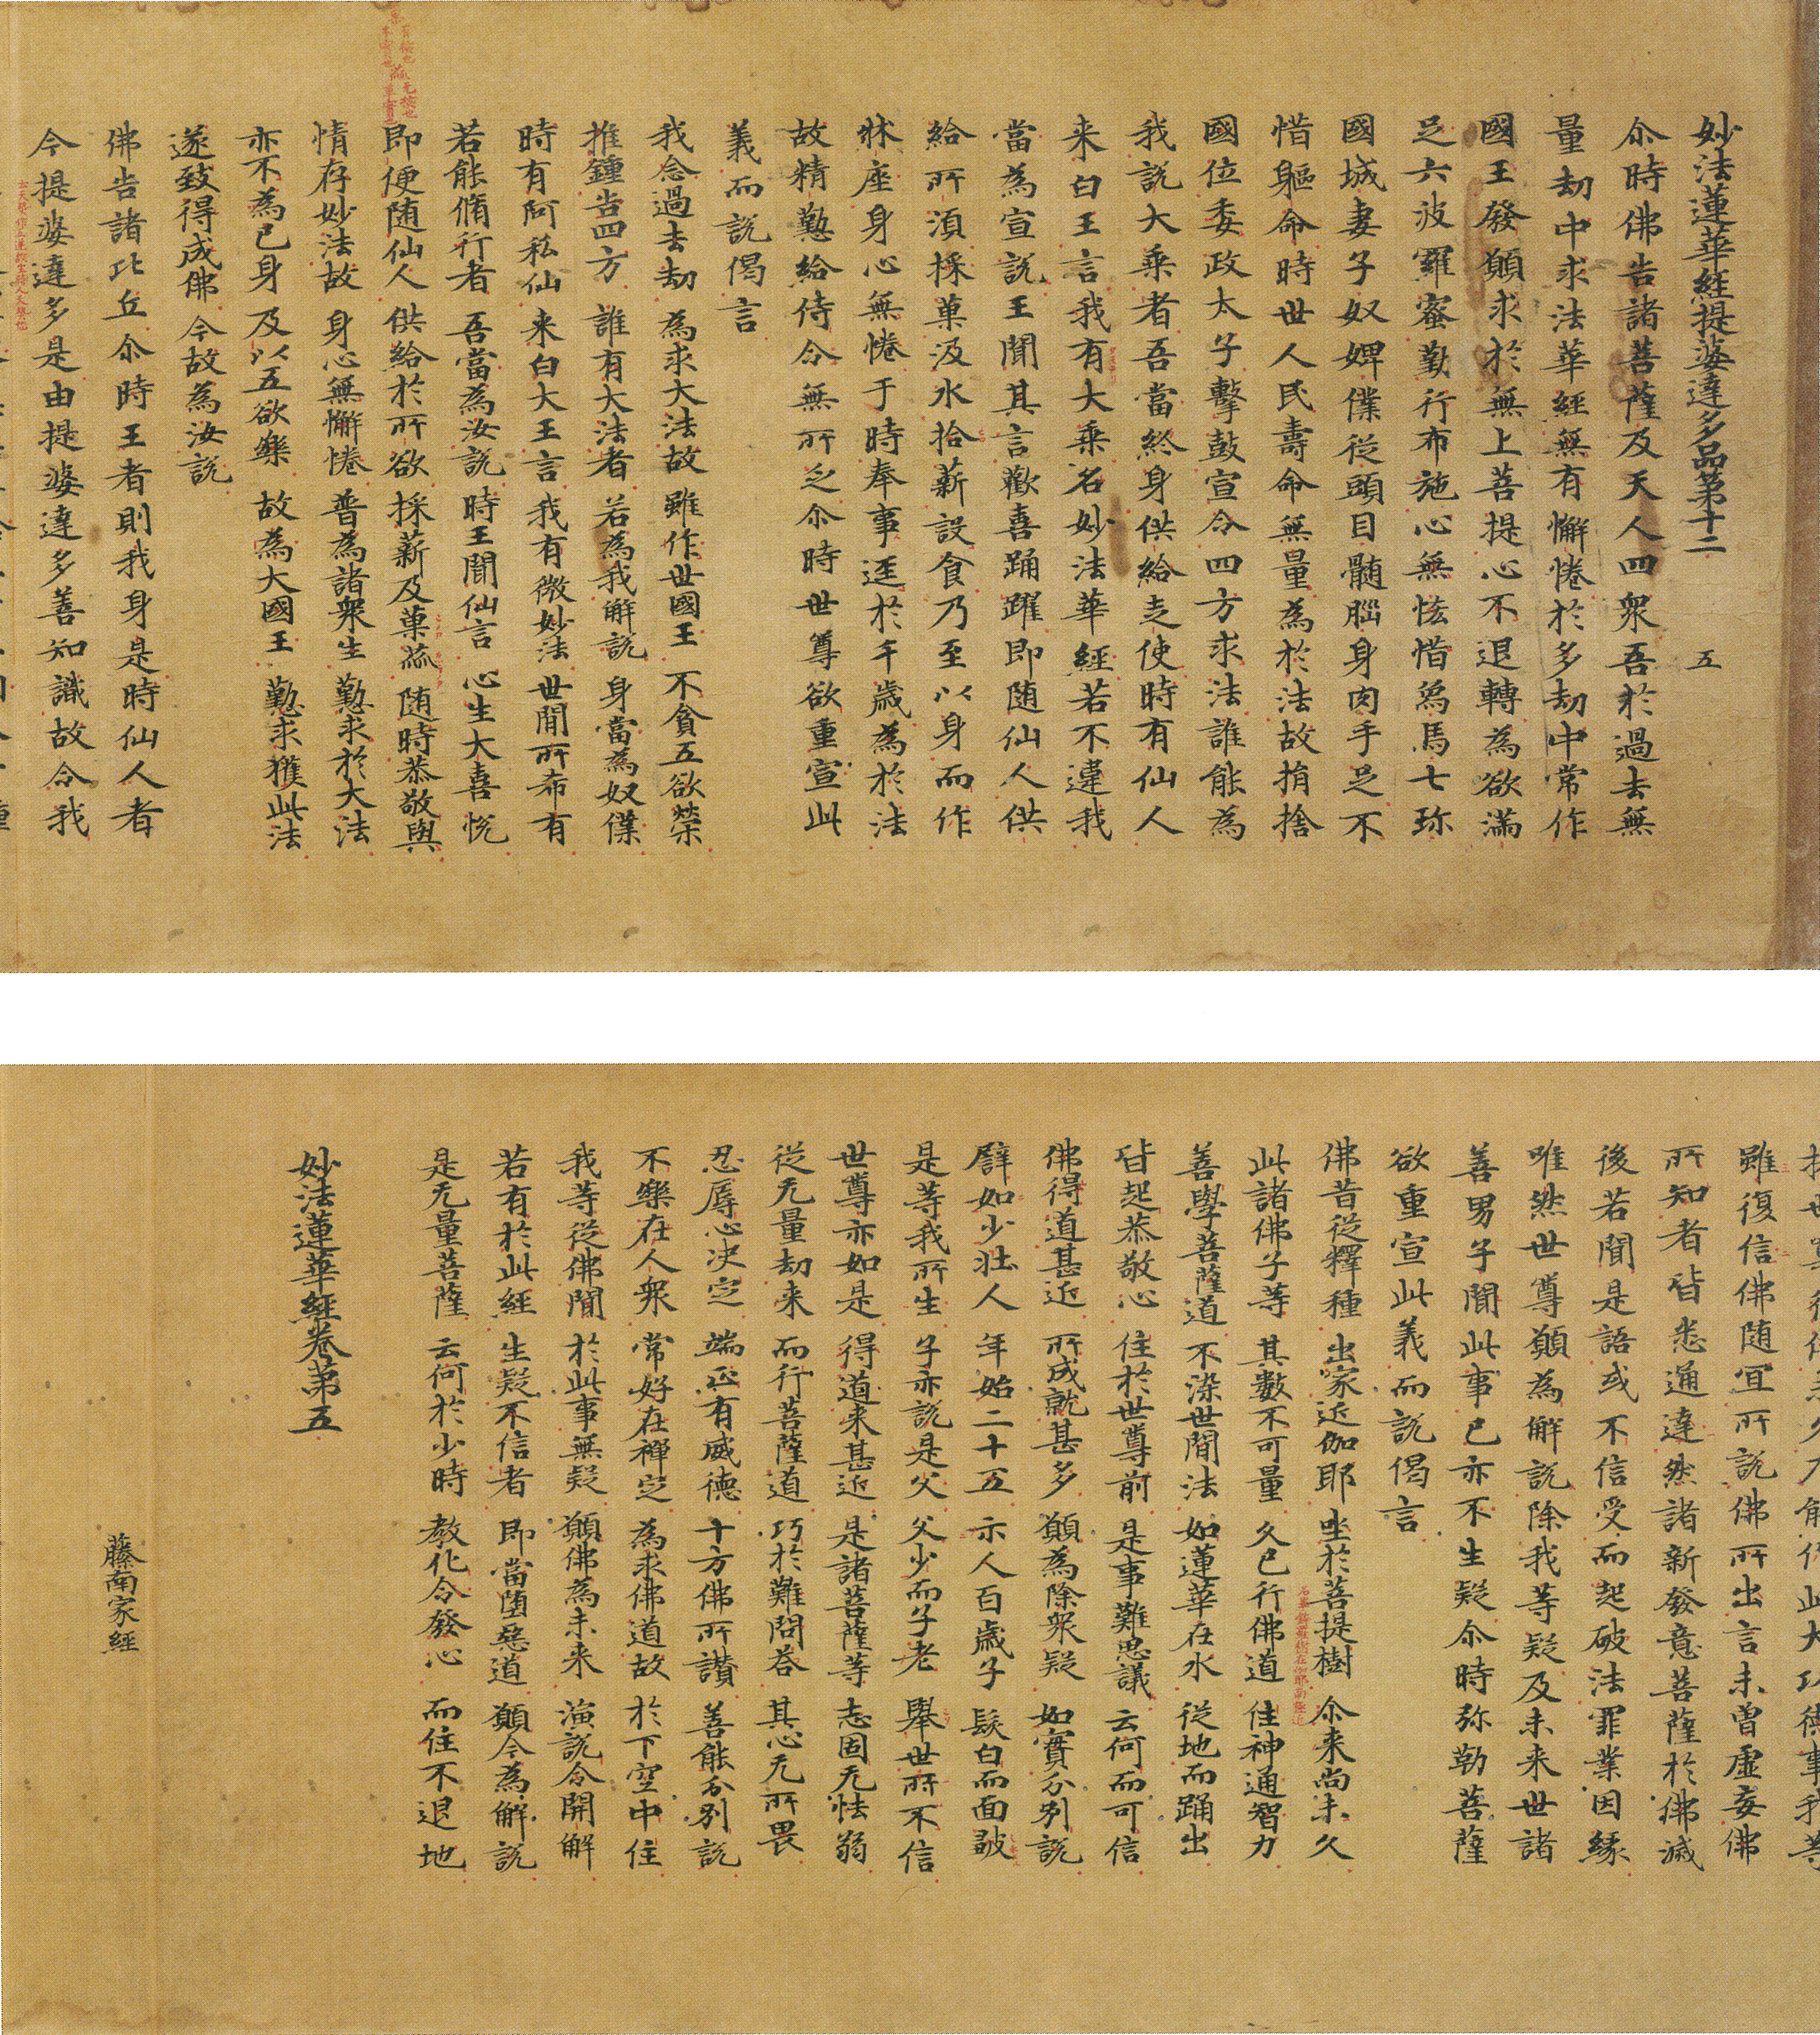 妙法蓮華經提婆達多品第十二　五
尒時佛告諸菩薩及天人四衆吾於過去無
量劫中求法華經無有懈惓於多劫中常作
國王發願求於無上菩提心不退轉為欲滿
足六波羅蜜勤行布施心無悋惜烏馬七珎
國城妻子奴婢僕從頭目髄腦身肉手足不
惜軀命時世人民壽命無量為於法故捐捨
國位委政太子擊鼓宣令四方求法誰能為
我說大乘者吾當終身供給走使時有仙人
来白王言我有大乘名妙法華經若不違我
當為宣說王聞其言歡喜踊躍即随仙人供
給所湏採菓汲水拾薪設食乃至以身而作
牀座身心無惓于時奉事逕於千歳為於法
故精懃給侍令無所乏尒時世尊欲重宣此
義而說偈言
我念過去劫　為求大法故　雖作世國王　不貪五欲樂
推鍾告四方　誰有大法者　若為我解說　身當為奴僕
時有阿私仙　来白大王言　我有微妙法　世間所希有
若能脩行者　吾當為汝說　時王聞仙言　心生大喜悅
即便随仙人　供給於所欲　採薪及菓蓏　随時恭敬與
情存妙法故　身心無懈惓　普為諸衆生　懃求於大法
亦不為己身　及以五欲樂　故為大國王　懃求獲此法
遂致得成佛　今故為汝說
佛告諸比丘尒時王者則我身是時仙人者
今提婆達多是由提婆達多善知識故令我
雖復信佛随冝所說佛所出言未曽虛妄佛
所知者皆悉通達然諸新發意菩薩於佛滅
後若聞是語或不信受而起破法罪業因緣
唯然世尊願為解說除我等疑及未来世諸
善男子聞此事已亦不生疑尒時弥勒菩薩
欲重宣此義而說偈言
佛昔從釋種　出家近伽耶　坐於菩提樹　尒来尚未久
此諸佛子等　其數不可量　久已行佛道　住神通智力
善學菩薩道　不染世間法　如蓮華在水　從地而踊出
皆起恭敬心　住於世尊前　是事難思議　云何而可信
佛得道甚近　所成就甚多　願為除衆疑　如實分別說
譬如少壮人　年始二十五　示人百歳子　髮白而面皺
是等我所生　子亦說是父　父少而子老　舉世所不信
世尊亦如是　得道来甚近　是諸菩薩等　志固无怯弱
從无量劫来　而行菩薩道　巧於難問荅　其心无所畏
忍辱心決定　端正有威德　十方佛所讃　善能分別說
不樂在人衆　常好在禪定　為求佛道故　於下空中住
我等從佛聞　於此事無疑　願佛為未来　演說令開解
若有於此經　生疑不信者　即當堕惡道　願今為解說
是无量菩薩　云何於少時　教化令發心　而住不退地
妙法蓮華經卷第五
藤南家經